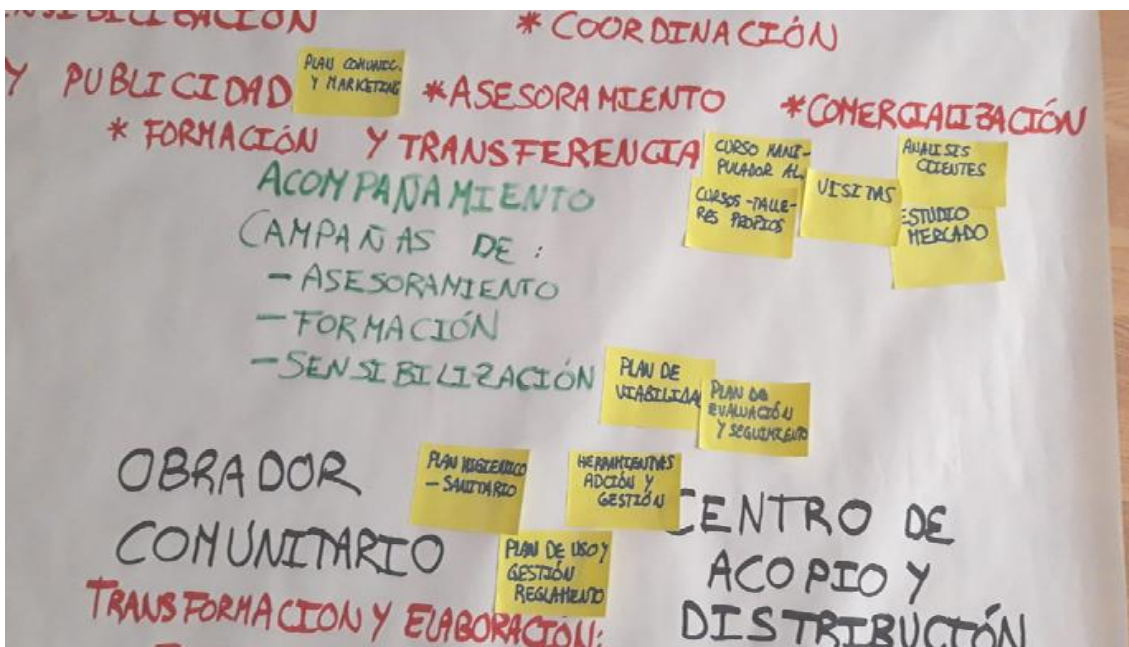 SENSIBILIZACIÓN
* COORDINACIÓN
Y PUBLICIDAD
PLAN COMUNIC.
Y MARKETING
* ASESORAMIENTO
* COMERCIALIZACIÓN
* FORMACIÓN Y TRANSFERENCIA
CURSO MANI-
PULADOR AL.
CURSOS-TALLE-
RES PROPIOS
VISITAS
ANALISIS
CLIENTES
ESTUDIO
MERCADO
ACOMPAÑAMIENTO
CAMPAÑAS DE :
- ASESORAMIENTO
- FORMACIÓN
- SENSIBILIZACIÓN
PLAN DE
VIABILIDA
PLAN DE
EVALUACIÓN
Y SEGUIMIENTO
OBRADOR
COMUNITARIO
PLAN HIGIENICO
- SANITARIO
HERRAMIENTAS
ADCIÓN Y
GESTIÓN
PLAN DE USO Y
GESTIÓN
REGLAMENTO
CENTRO DE
ACOPIO Y
DISTRIBUCIÓN
TRANSFORMACION Y ELABORACIÓN: